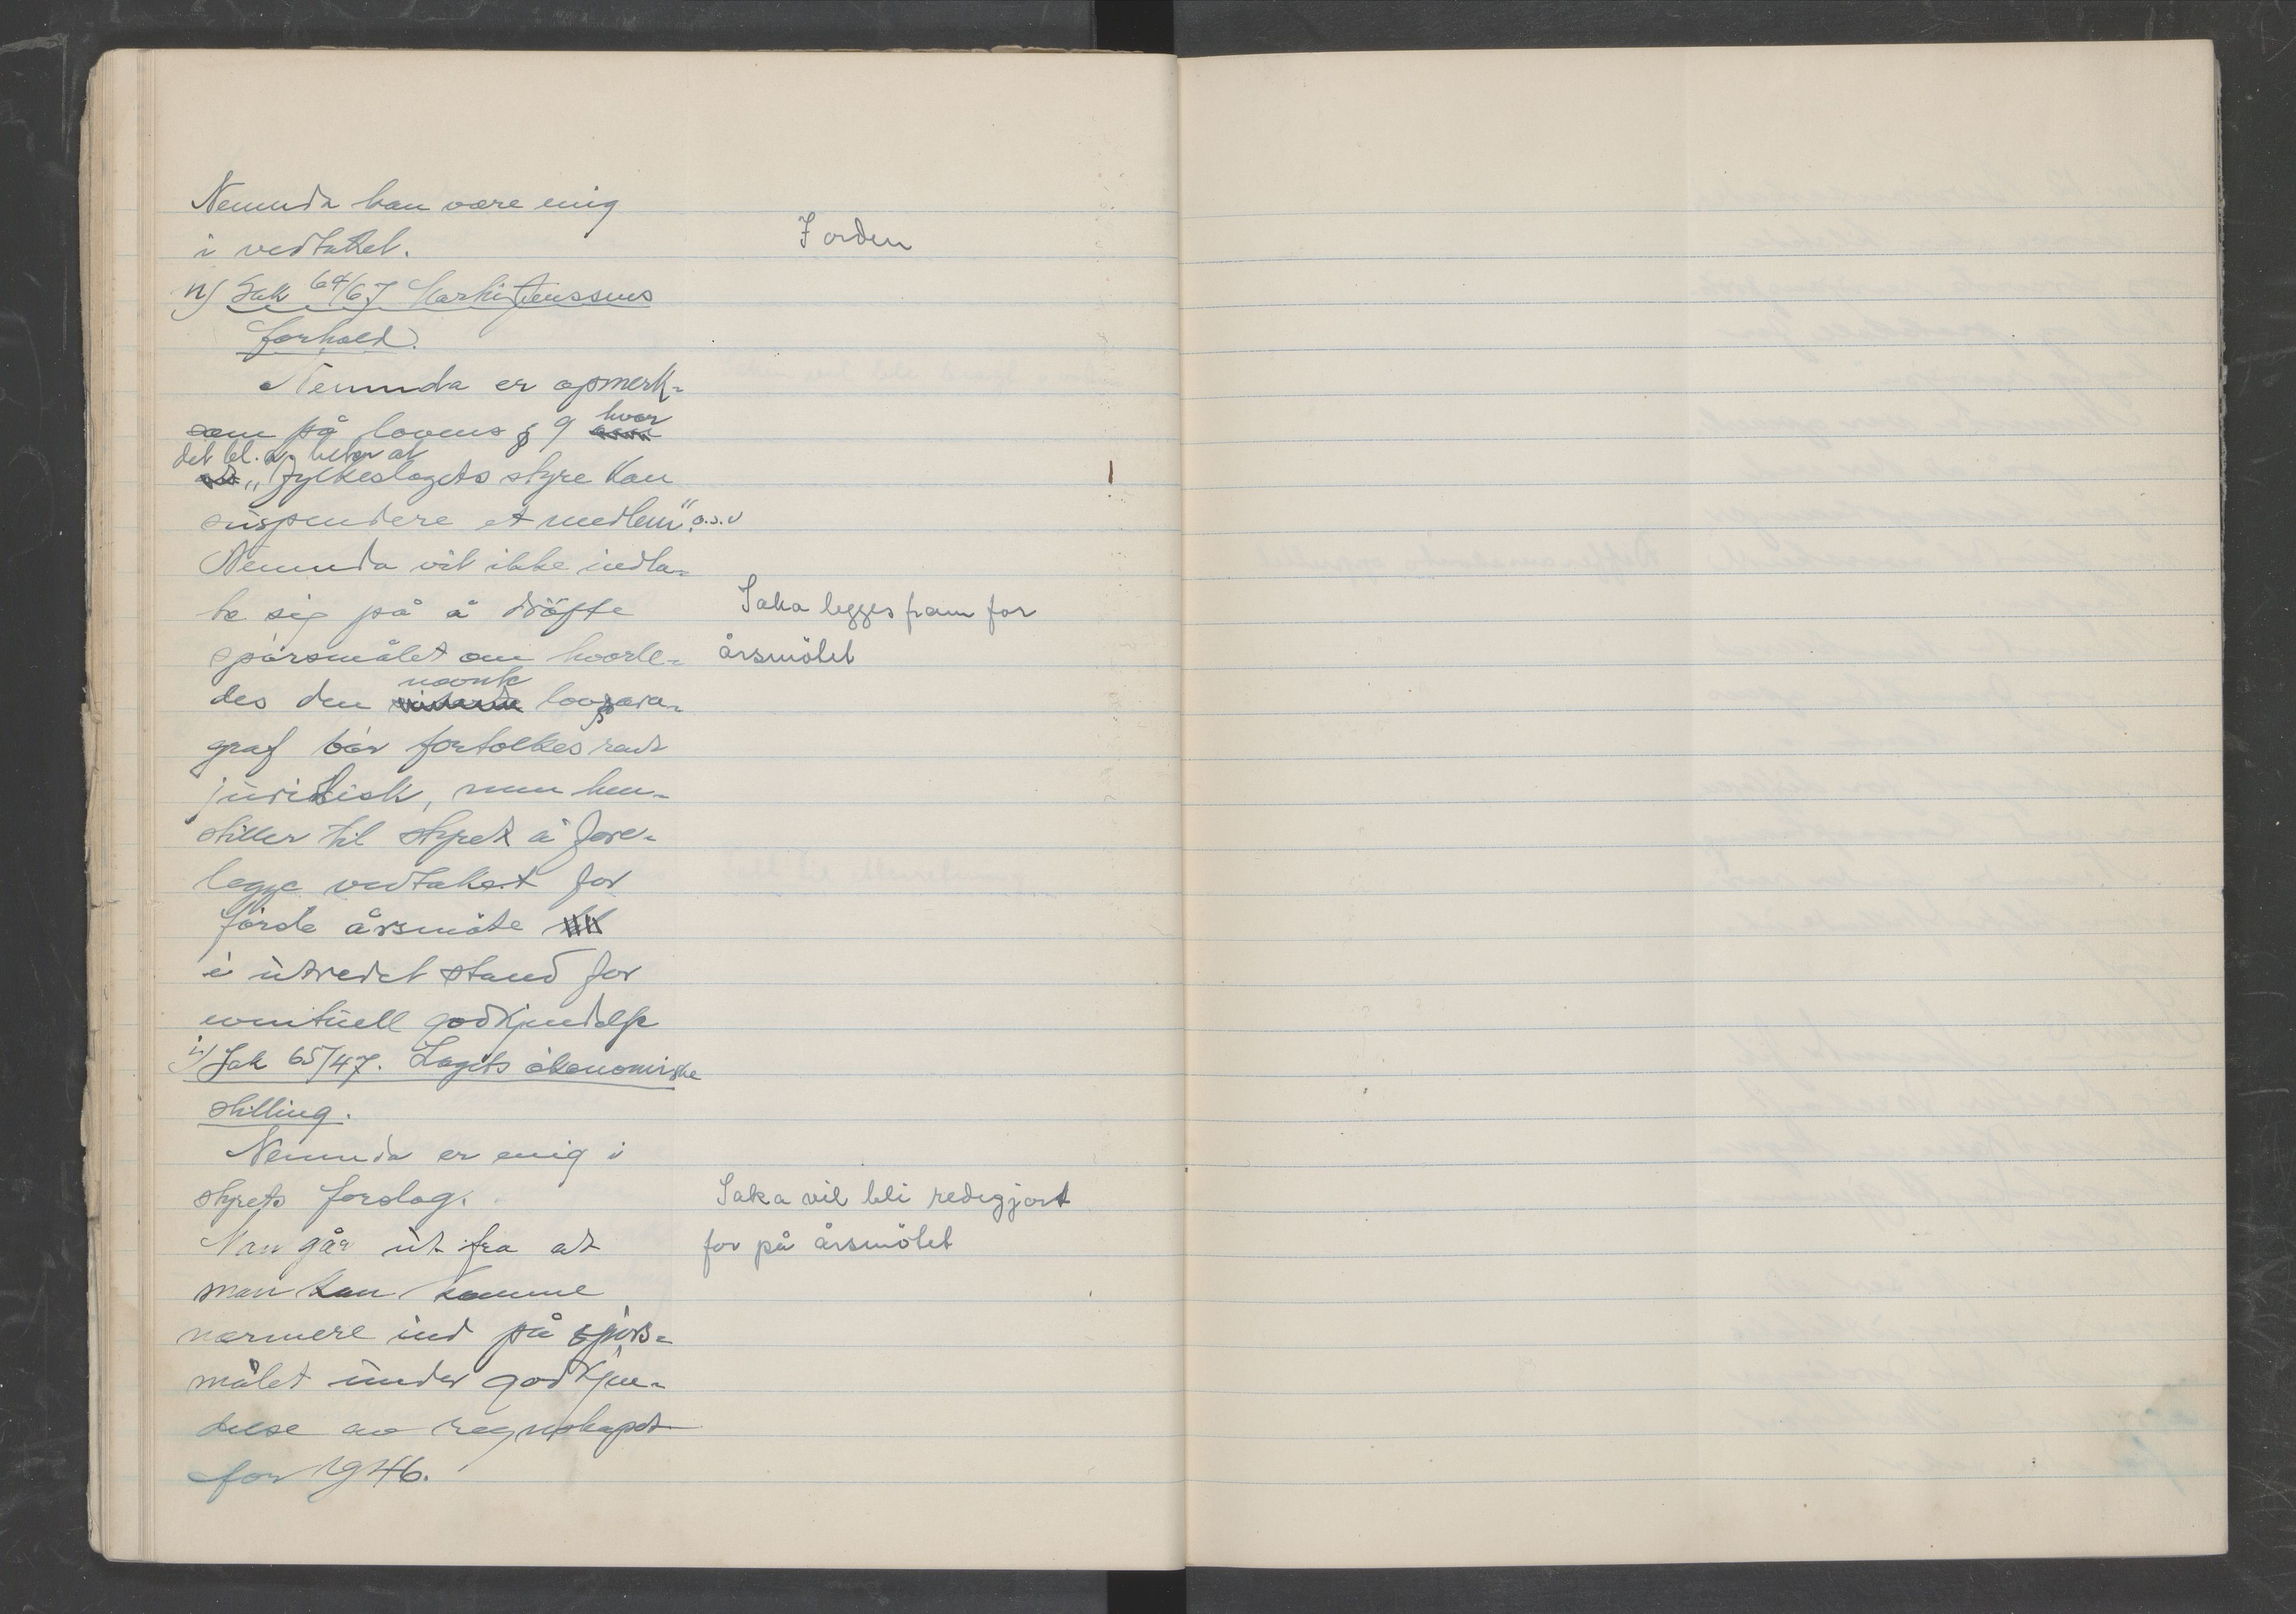 Nemnda kan være enig
i vedtaket.
I orden
n) Sak 64/67
forhold.
Nemnda er opmerk-
som på lovens § 9 hvor
det bl. a. heter at
"Fylkeslagets styre kan
suspendere et medlem". o.s.v
Nemnda vil ikke indla-
te sig på å dröfte
spörsmålet om hvorle-
des den nevnte lovpara-
graf bör fortolkes rent
juridisk, men hen-
stiller til styret å fore-
legge vedtaket for
förste årsmöte
i utredet stand for
eventuell godkjendelse
Saka legges fram for
årsmötet
i/ Sak 65/47. Lagets ökonomiske
stilling.
Nemnda er enig i
styrets forslag.
Man går ut fra at
man kan komme
nærmere ind på spörs-
målet under godkjen-
delse av regnskapet
for 1946.
Saka vil bli redegjort
for på årsmötet